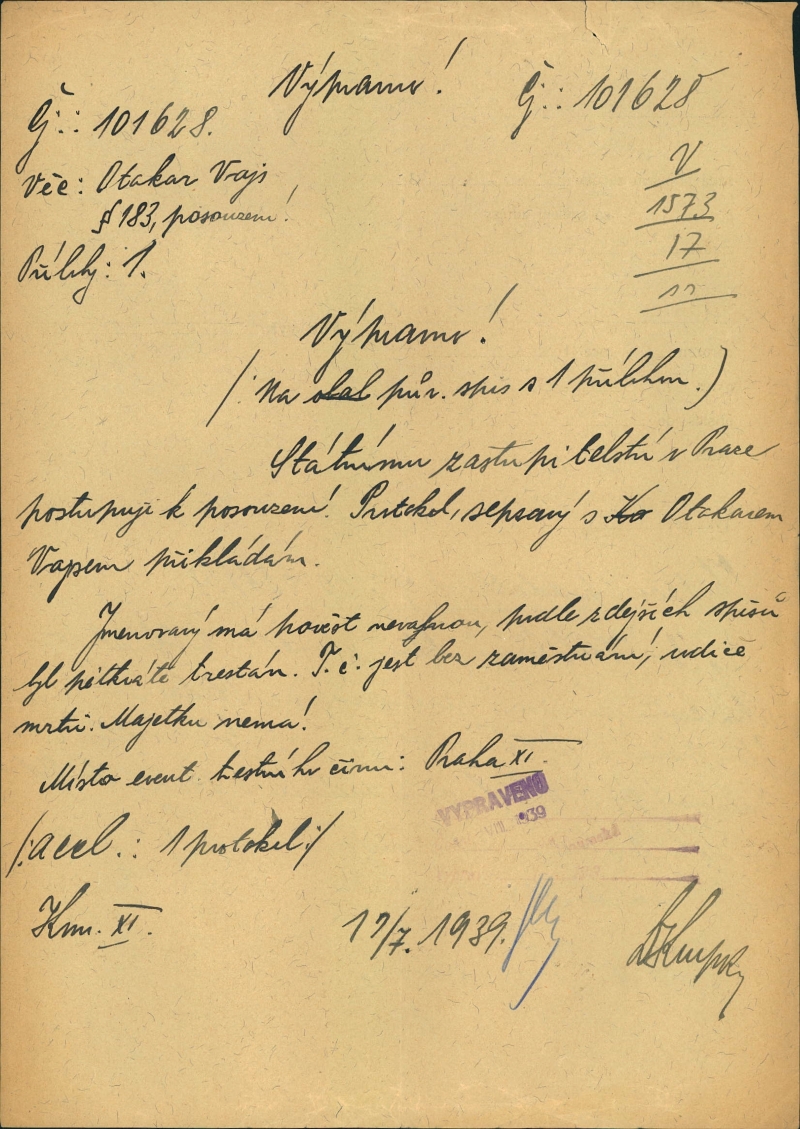 Výpravno!
Čj.: 101628.
Čj.: 101628
Věc: Otakar Vajs
§ 183, posouzení!
Přílohy: 1.
V
1573
17
11
Výpravno!
(: Na obal pův. spis s 1 přílohou.)
Státnímu zastupitelství v Praze
postupuji k posouzení. Protokol, sepsaný s Ko Otakarem
Vajsem přikládám.
Jmenovaný má pověst nevalnou, podle zdejších spisů
byl pětkráte trestán. T. č. jest bez zaměstnání, rodiče
mrtvi. Majetku nemá!
Místo event. trestního činu: Praha XI.
VYPRAVENO
VII. 1939
/: acel.: 1 protokol :/
Kom. XI.
17/7. 1939.